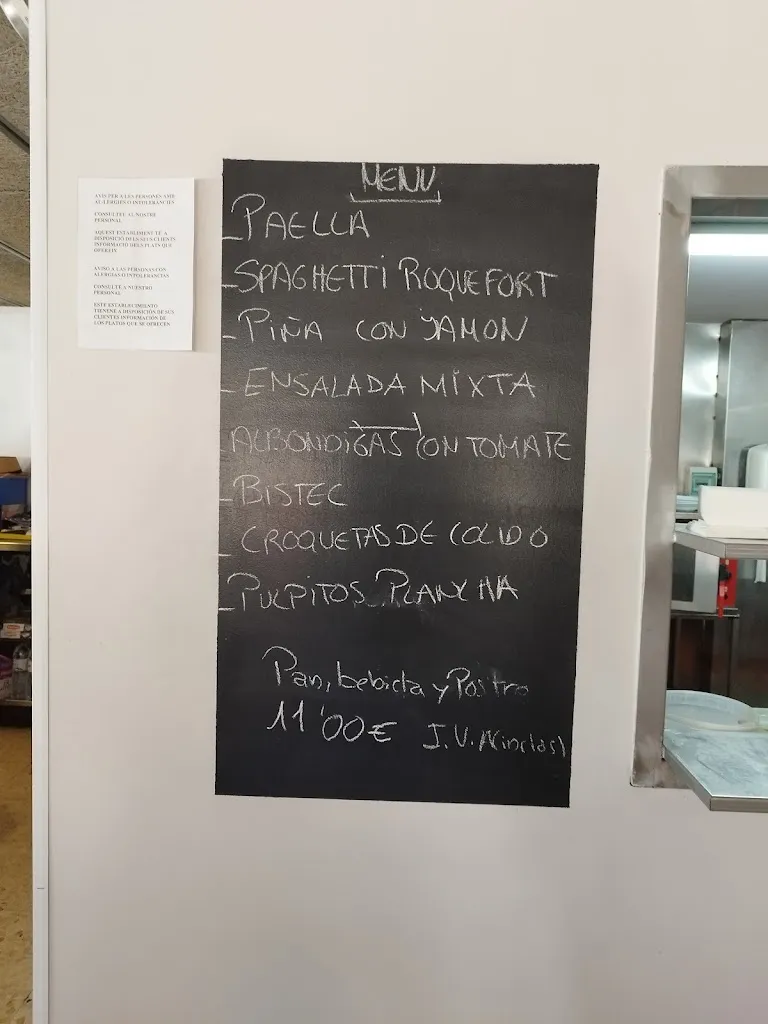 AVIS PER A LES PERSONES AMB
AL·LERGIES O INTOLERÀNCIES
CONSULTEU AL NOSTRE
PERSONAL
AQUEST ESTABLIMENT TÉ A
DISPOSICIÓ DELS SEUS CLIENTS
INFORMACIÓ DELS PLATS QUE
OFEREIX
AVISO A LAS PERSONAS CON
ALERGIAS O INTOLERANCIAS
CONSULTE A NUESTRO
PERSONAL
ESTE ESTABLECIMIENTO
TIENE A DISPOSICIÓN DE SUS
CLIENTES INFORMACIÓN DE
LOS PLATOS QUE SE OFRECEN
MENU
-PAELLA
-SPAGHETTI ROQUEFORT
-PIÑA CON JAMON
-ENSALADA MIXTA
-ALBONDIGAS CON TOMATE
-BISTEC
-CROQUETAS DE COCIDO
-PULPITOS PLANCHA
Pan, bebida y Postre
11'00€ I.V.A